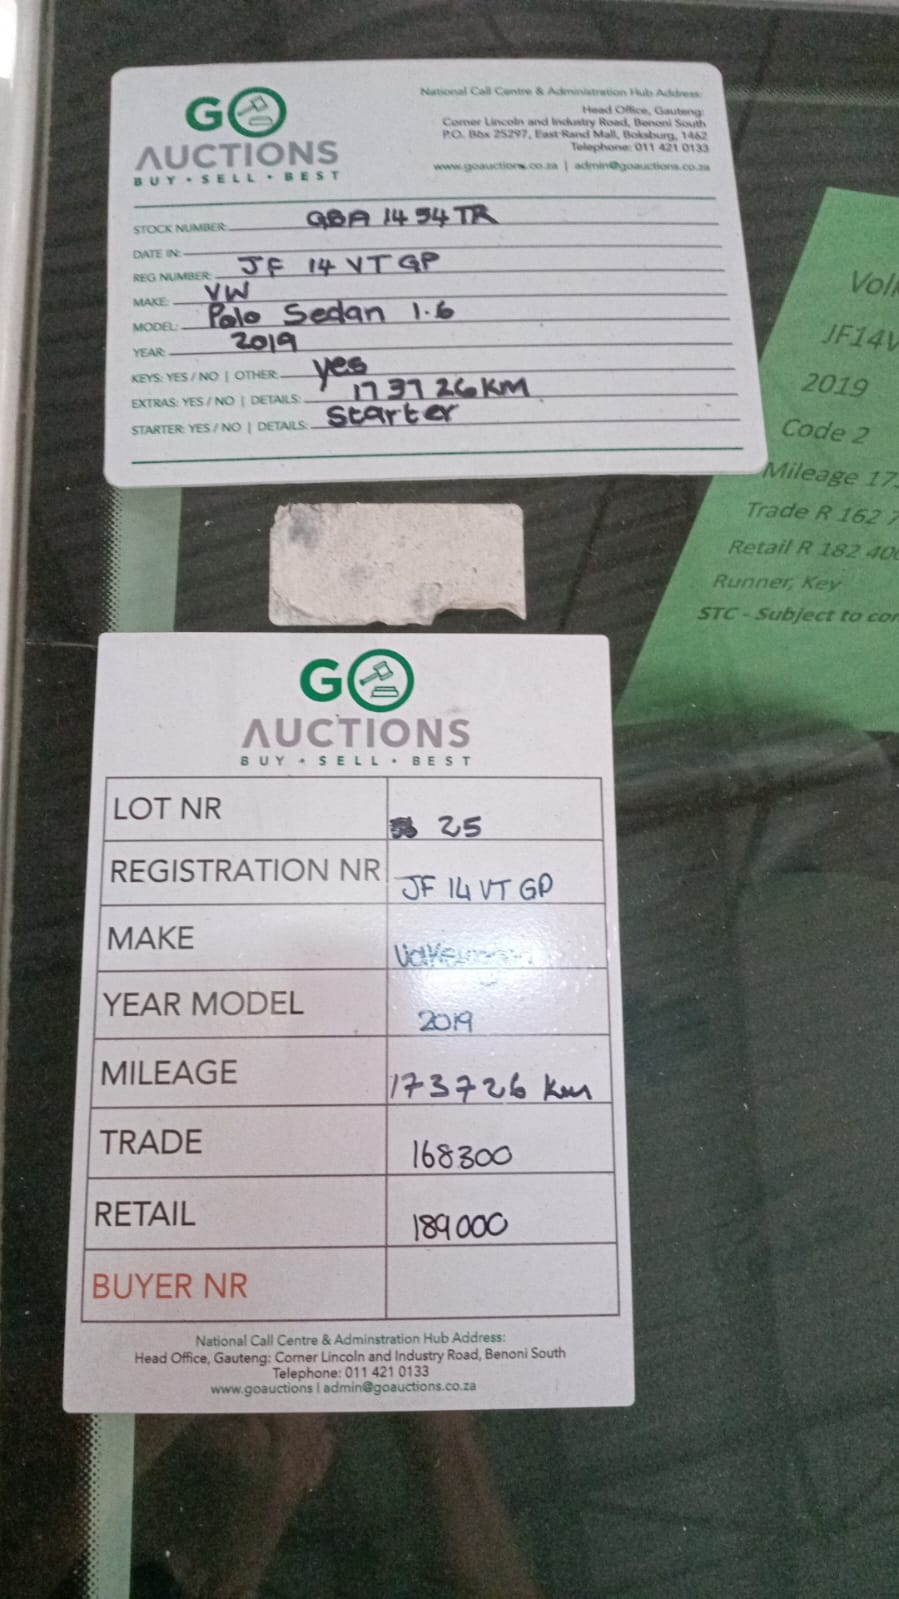 GO
AUCTIONS
BUY • SELL • BEST
National Call Centre & Administration Hub Address:
Head Office, Gauteng:
Corner Lincoln and Industry Road, Benoni South
P.O. Box 25297, East Rand Mall, Boksburg, 1462
Telephone: 011 421 0133
www.goauctions.co.za | admin@goauctions.co.za
STOCK NUMBER: GBA 1454TR
DATE IN:
REG NUMBER: JF 14 VT GP
MAKE: VW
MODEL: Polo Sedan 1.6
YEAR: 2019
KEYS: YES / NO | OTHER: yes
EXTRAS: YES / NO | DETAILS: 173726KM
STARTER: YES / NO | DETAILS: Starter
JF14V
2019
Code 2
Mileage 17
Trade R 162 7
Retail R 182 40
Runner, Key
STC - Subject to
GO
AUCTIONS
BUY • SELL • BEST
LOT NR 25
REGISTRATION NR JF 14 VT GP
MAKE
YEAR MODEL 2019
MILEAGE 173726 km
TRADE 168300
RETAIL 189000
BUYER NR
National Call Centre & Adminstration Hub Address:
Head Office, Gauteng: Corner Lincoln and Industry Road, Benoni South
Telephone: 011 421 0133
www.goauctions | admin@goauctions.co.za